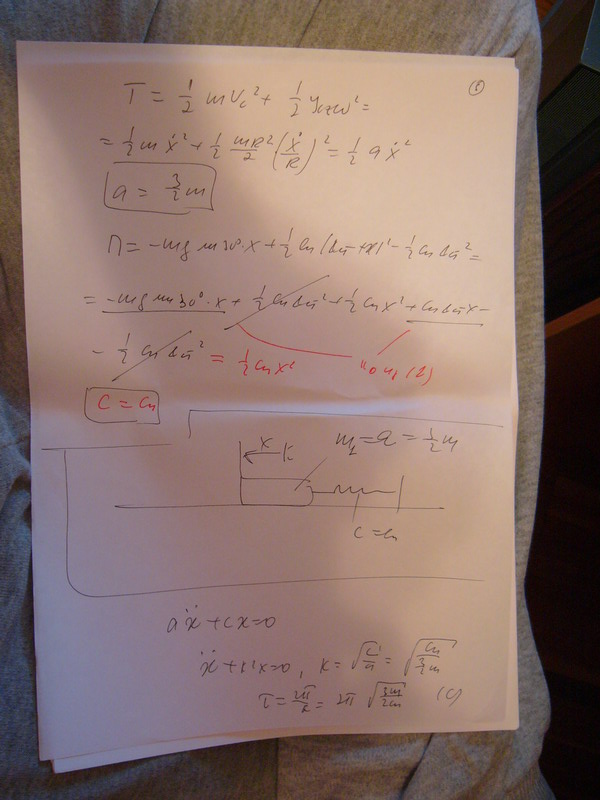 T = 1/2 m V_c² + 1/2 J_cz ω² =
= 1/2 m ẋ² + 1/2 mR²/2 (ẋ/R)² = 1/2 a ẋ²
a = 3/2 m
П = -mg sin 30°·x + 1/2 c_п (Δ_ст + x)² - 1/2 c_п Δ_ст² =
= -mg sin 30°·x + 1/2 c_п Δ_ст² + 1/2 c_п x² + c_п Δ_ст x -
- 1/2 c_п Δ_ст² = 1/2 c_п x²
(2)
c = c_п
x
m_1 = a = 3/2 m
c = c_п
aẍ + cx = 0
ẍ + k²x = 0, k = √(c/a) = √(c_п/(3/2 m))
τ = 2π/k = 2π √(3m/2c_п) (c)